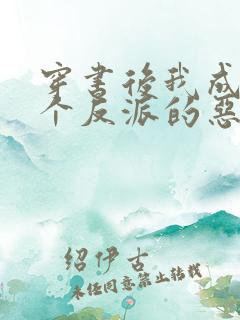 穿書後我成
个反派的惡
绍伊古
未经同意禁止转载